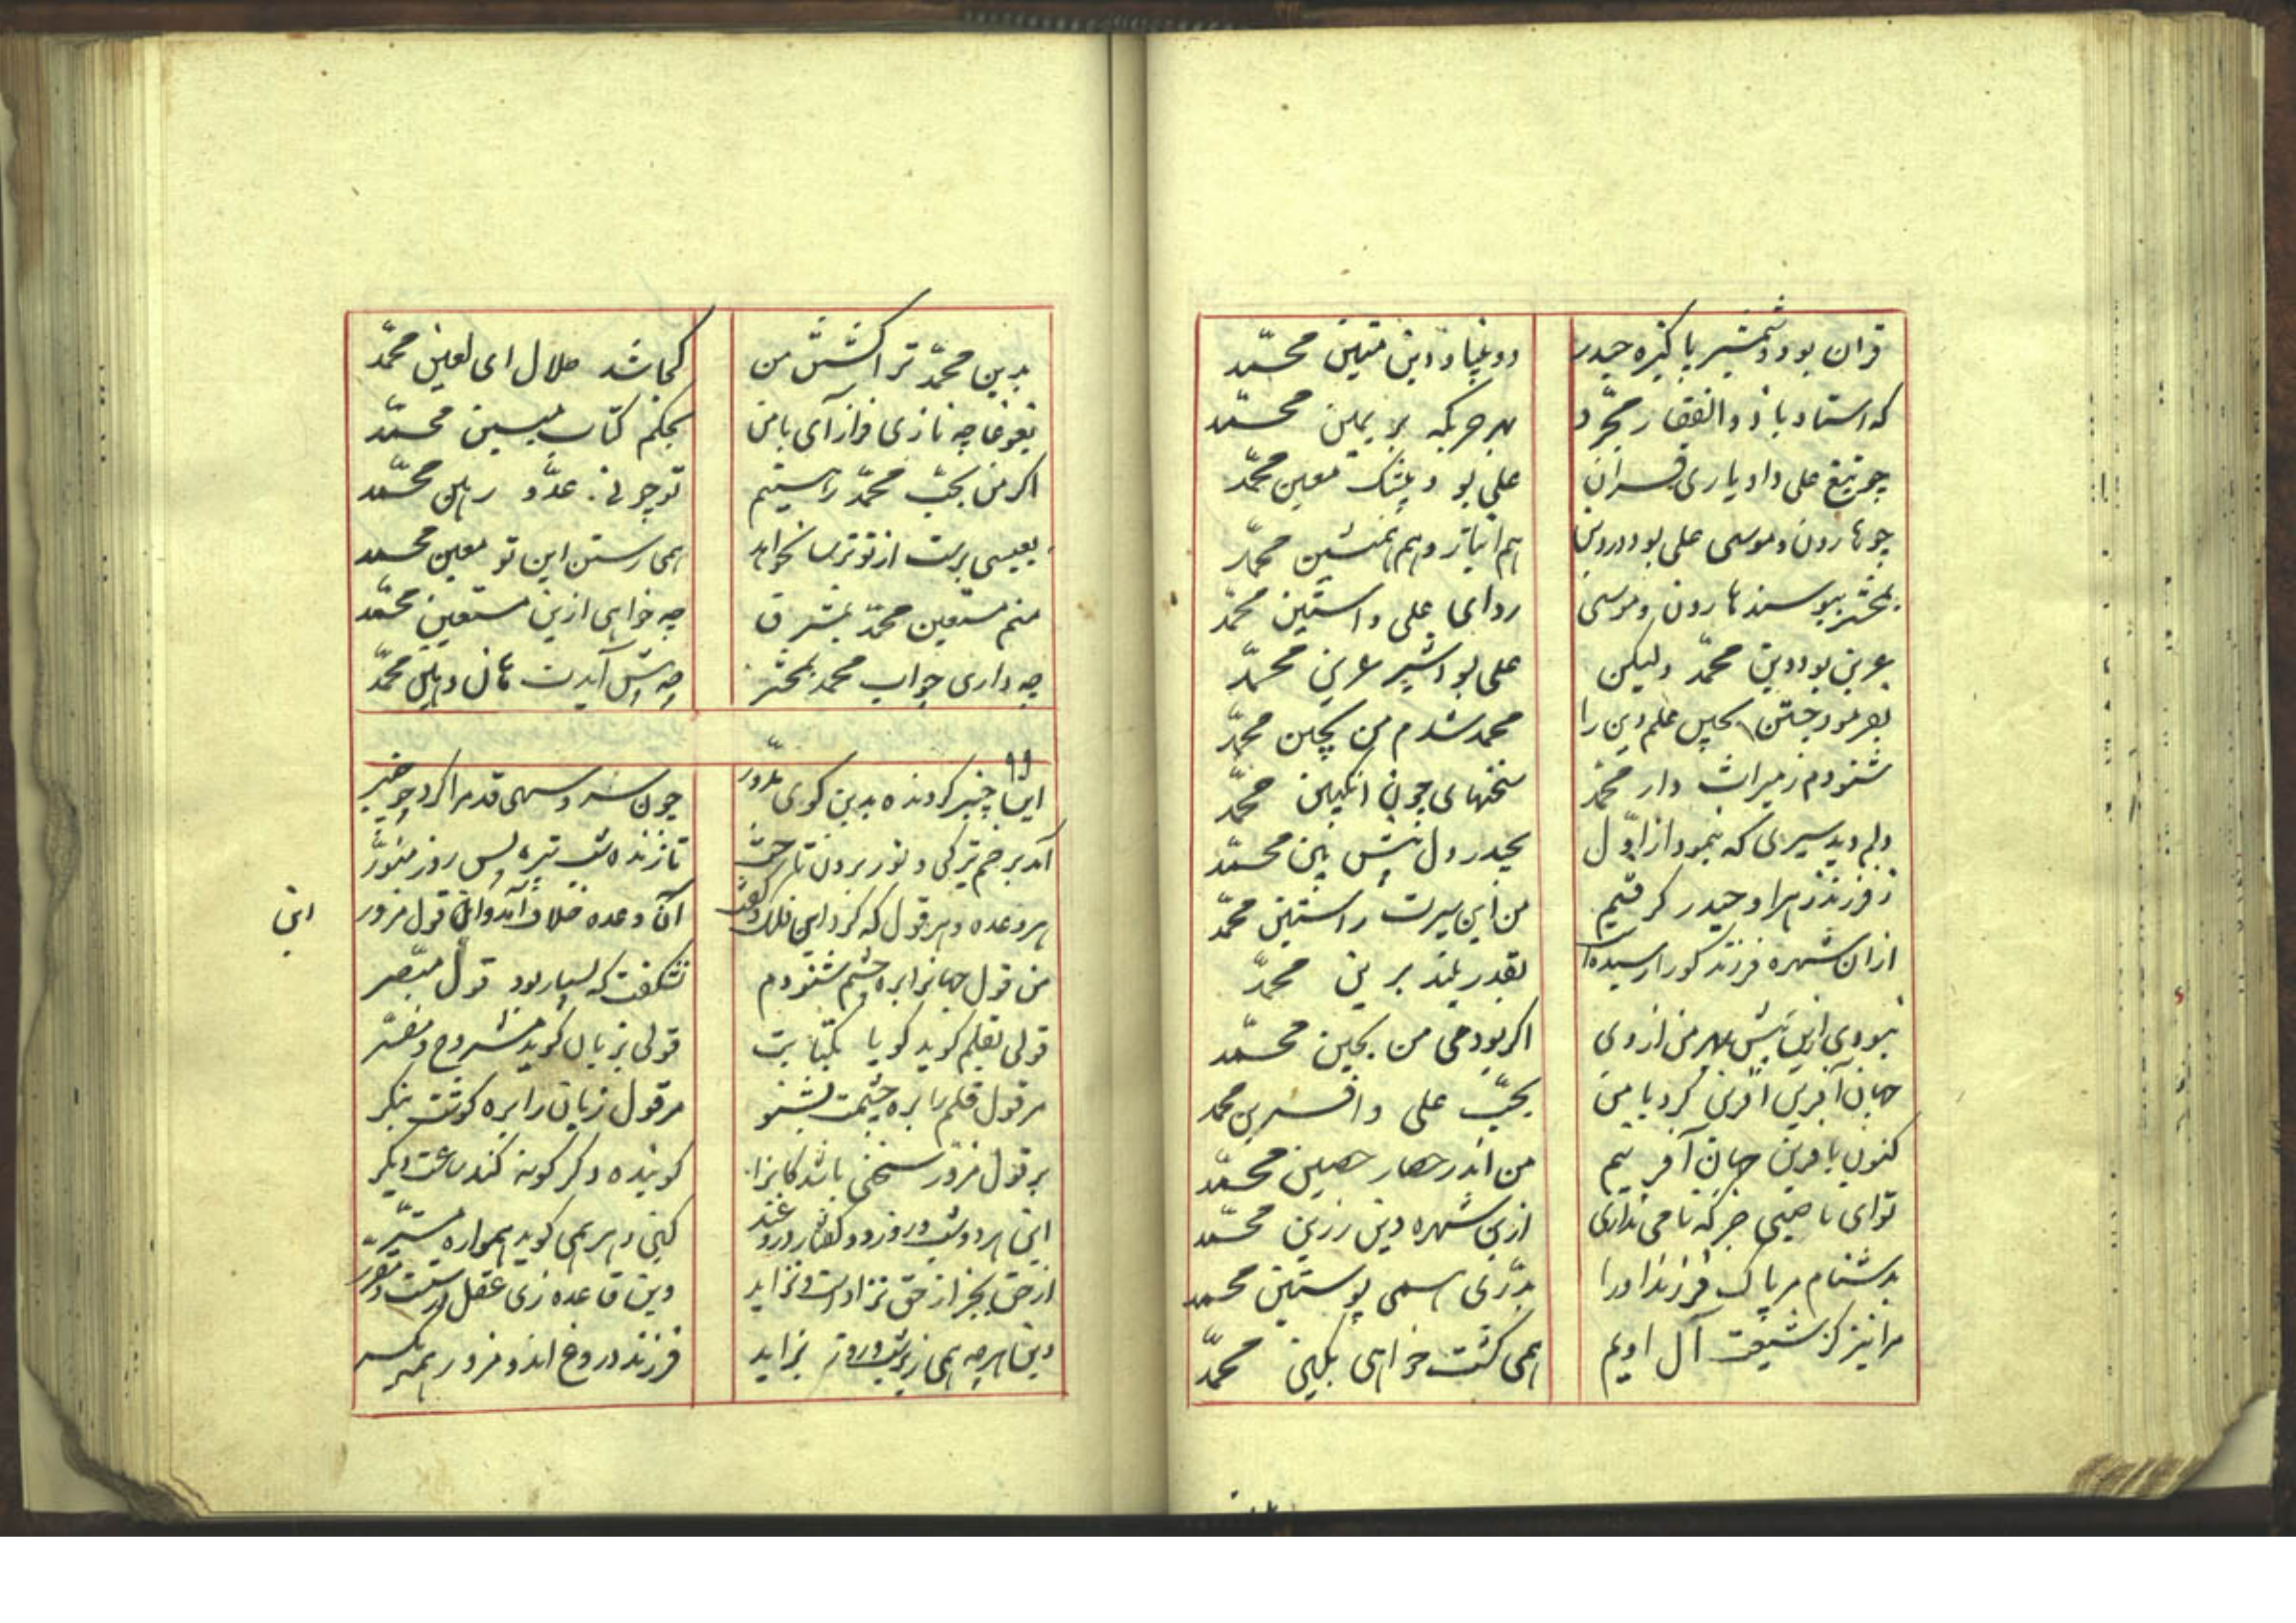 قران بود و شمشیر پاکیزه حیدر دو بنیاد دین متین محمّد
که استاد با ذوالفقار مجرّد بهر حربگه بر یمین محمّد
چو تیغ علی داد یاری قران علی بود بیشک معین محمّد
چو هارون و موسی علی بود در دین هم انباز و هم همنشین محمّد
بمحشر ببوسند هارون و موسی ردای علی و استین محمّد
عرین بود دین محمّد ولیکن علی بود شیر عرین محمّد
بفرمود جستن بچین علم دین را محمد شدم من بچین محمّد
شنودم ز میراث دار محمّد سخنهای چون انکبین محمّد
دلم دید سیری که بنمود از اوّل بحیدر دل پیش بین محمّد
ز فرزند زهرا و حیدر کرفتم من این سیرت راستین محمّد
ازان شهره فرزند کو را رسیده است بقدر بلند برین محمّد
نبودی ازین پیش بهر من ازوی اکر بودمی من بحین محمّد
جهان آفرین آفرین کرد با من بحبّ علی و افرین محمد
کنون بافرین جهان آفرینم من اندر حصار حصین محمّد
توای ناصبی جز که نامی نداری ازین شهره دین رزین محمّد
بدشنام مر پاک فرزند او را بدرّی همی پوستین محمد
مرا نیز کز شیعت آل اویم همی کشت خواهی بکین محمّد
بدین محمّد ترا کشتن من کجا شد حلال ای لعین محمّد
بغوغا چه نازی فراز آی با من بحکم کتاب مبین محمّد
اکر من بحبّ محمّد رهینم تو چونی عدّو رهین محمّد
بعیسی برست از تو ترسا نخواهد همی رستن این تو معین محمد
منم مستعین محمّد بمشرق چه خواهی ازین مستعین محمّد
چه داری جواب محمد بمحشر چه پیش آیدت هان و هین محمّد
ای چنبر کردنده بدین کوی مدوّر چون سرو سهی قد مرا کرد چو چنبر
آمد برخم تیرکی و نور برون تاخت تا زنده شب تیره پس روز منوّر
هر وعده و هر قول که کرد این فلک و کفت آن وعده خلاف آمد و ان قول مزور
این
من قول جهانرا بره چشم شنودم نشکفت که بسیار بود قول مبصّر
قولی بقلم کوید کویا بکتابت قولی بزبان کوید مشروح و مفسّر
مر قول قلم را بره چشمت بشنو مر قول زبان را بره کوشت بنکر
بر قول مزوّر سخنی باشد کانرا کوینده دکر کونه کند ساعت دیکر
این هر دو شب و روز دو کفتار دروغند کیتی بهر همی کوید همواره مستّر
از حق بجز از حق نزادست و نزاید وین قاعده زی عقل درستست و مقرر
وین هرچه همی زیر شب و روز بزاید فرزند دروغ اند و مزور همه یکسر